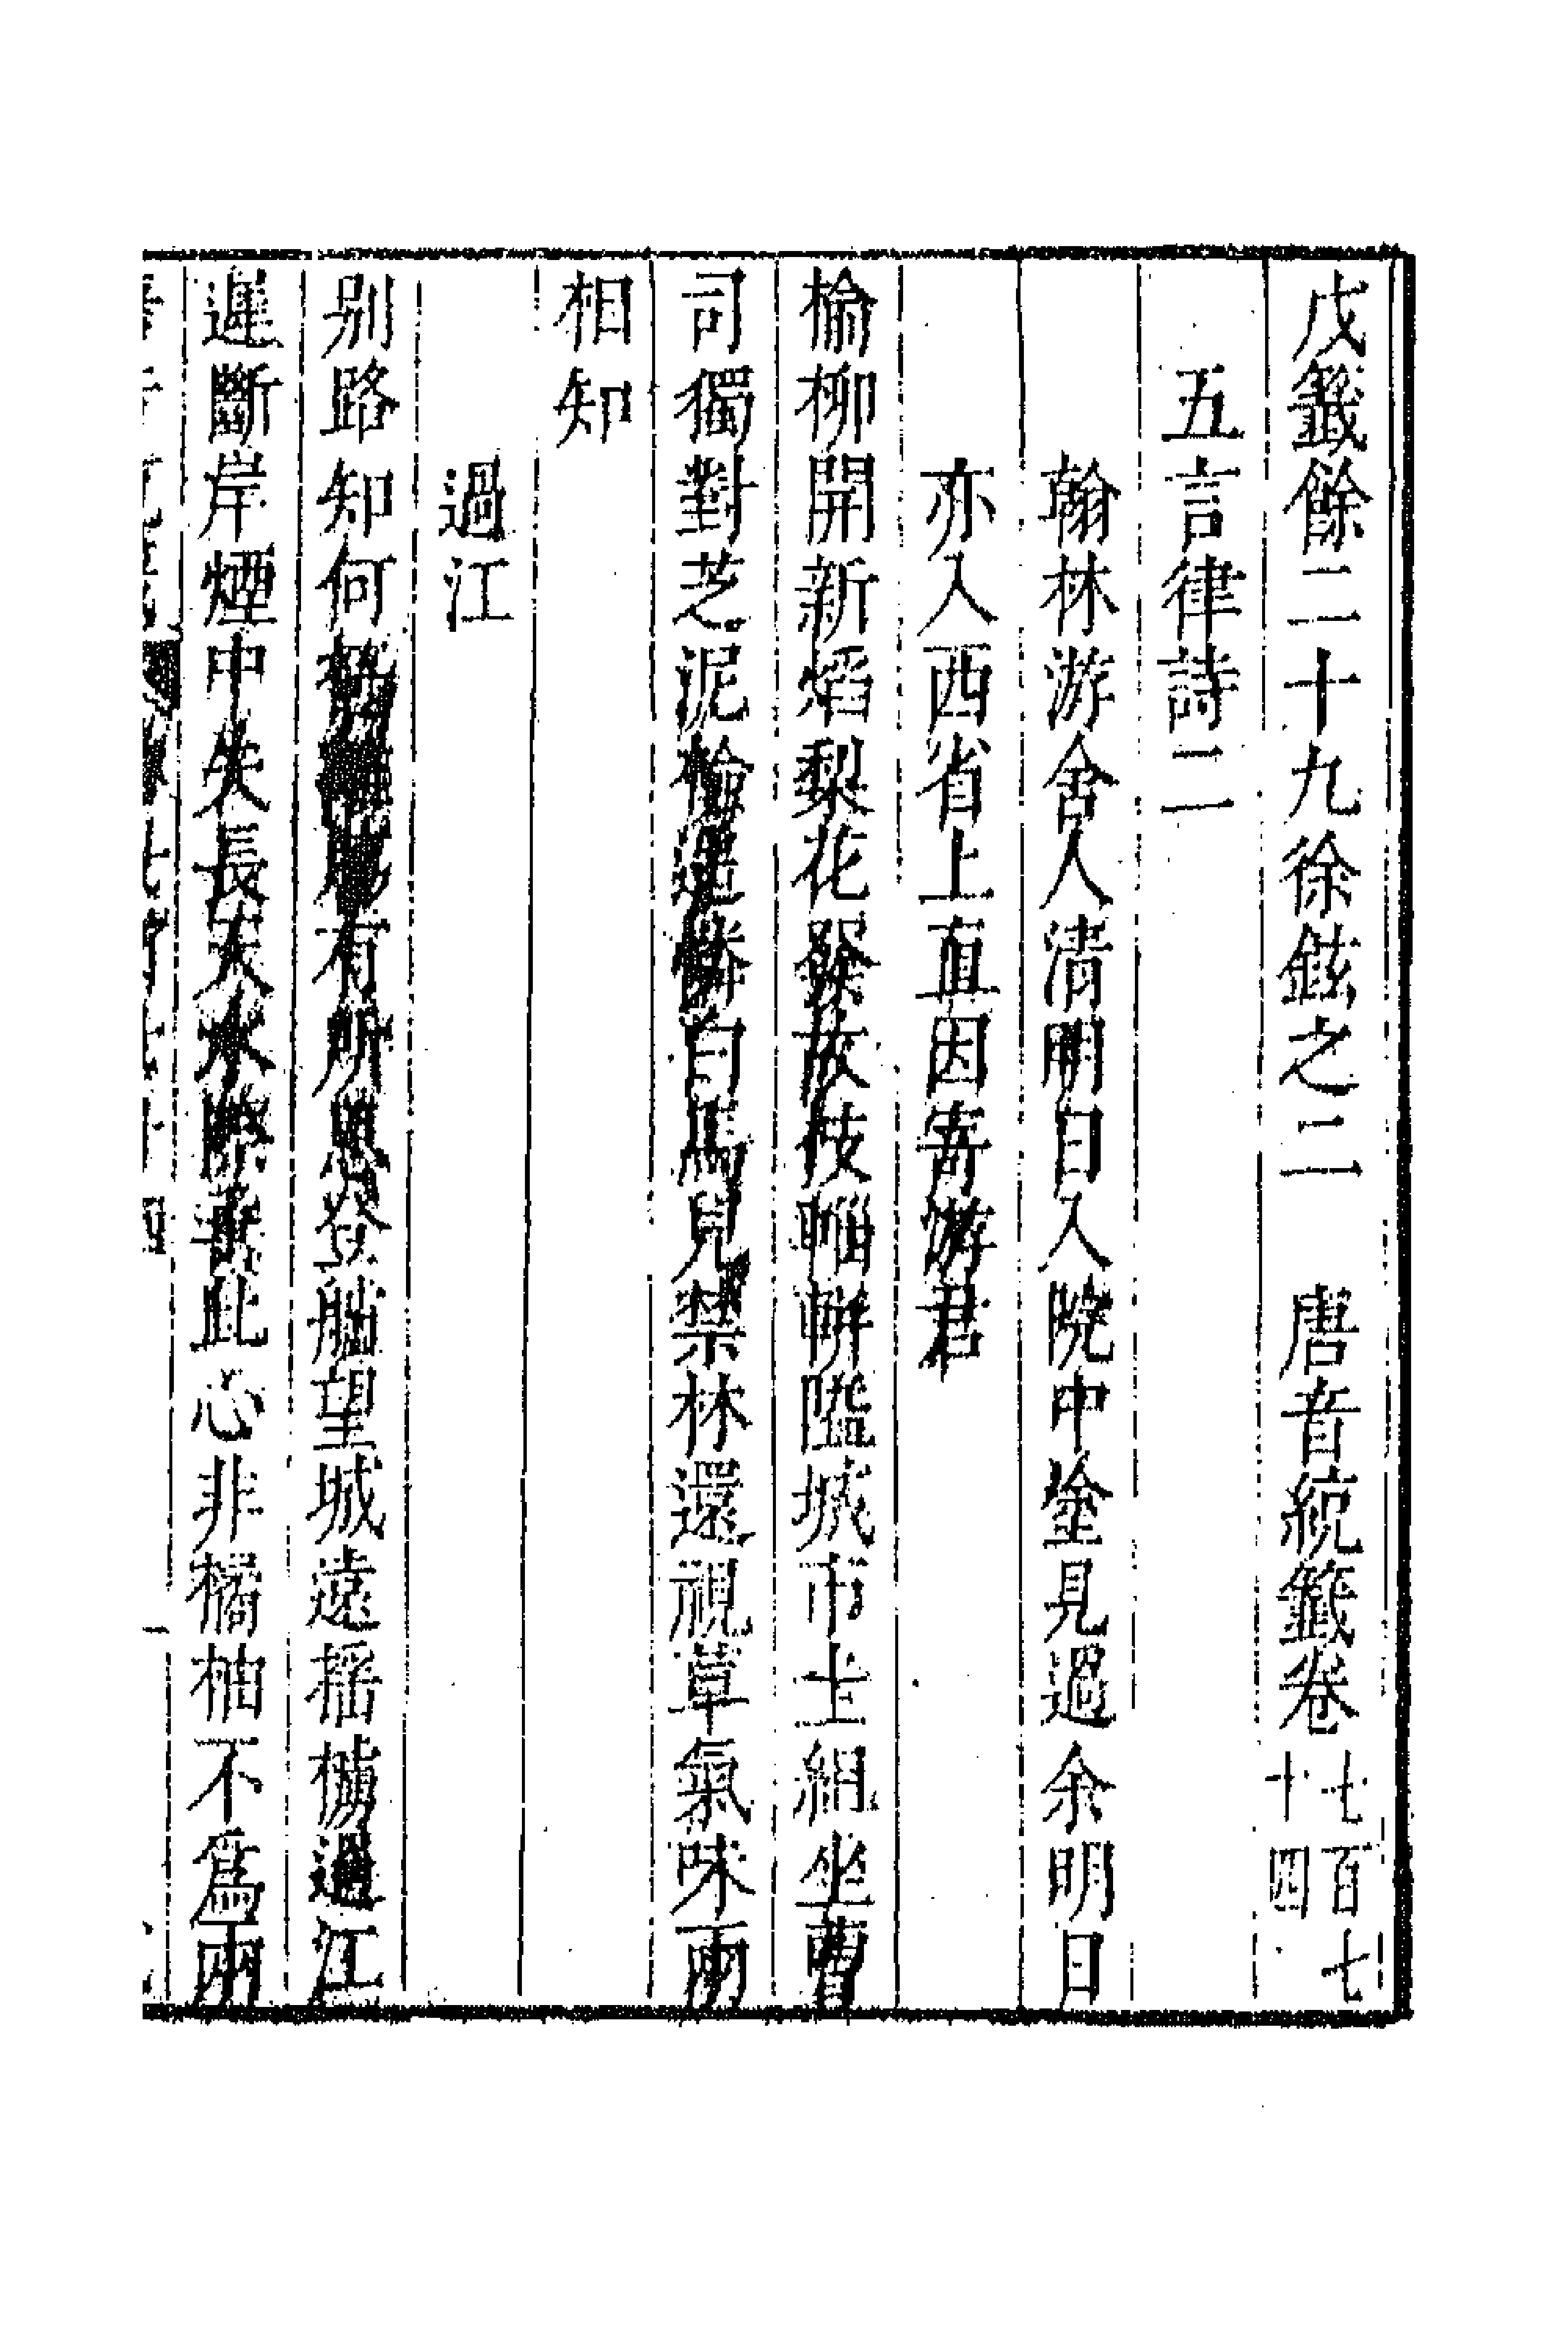 戊籤餘二十九徐鉉之二　唐音統籤卷七百七十四
五言律詩二
翰林游舍人清明日入院中塗見過余明日
亦入西省上直因寄游君
榆柳開新焰梨花發故枝輜軿隘城市圭組坐曹
司獨對芝泥檢遥憐白馬兒禁林還視草氣味兩
相知
過江
别路知何極離腸有所思登艫望城遠摇櫓過江
遲斷岸煙中失長天水際垂此心非橘柚不爲兩